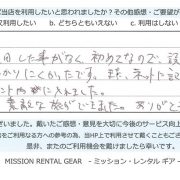 度当店を利用したいと思われましたか？その他感想・ご要望が
利用したい b. どちらともいえない c. 利用はしない
した事がなく、初めてなので、説
かりにくかったです。又、ネットに記
に入れました。
貴重な旅ができました。ありがと
ざいました。戴いたご感想・意見を大切に今後のサービス向上
をご利用になる方への参考の為、当HP上で利用させて戴くこともござ
是非、またのご利用機会を戴けましたら幸いです。
MISSION RENTAL GEAR - ミッション・レンタル ギア -